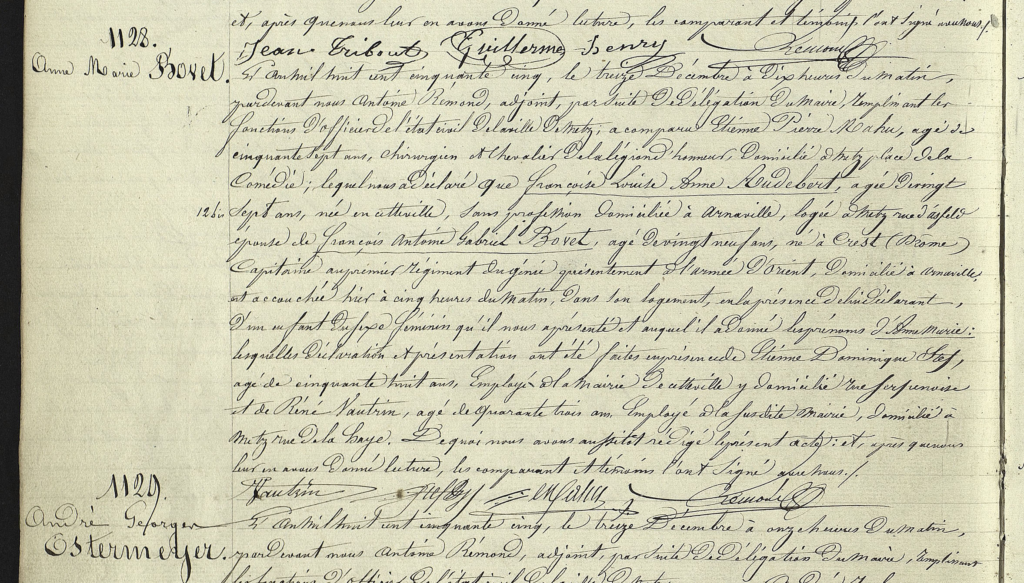 et, après que nous leur en avons donné lecture, les comparant et témoins l'ont signé avec nous./.
1128.
Jean Tribout Guillerme Henry Rémond
Anne Marie Bovet.
L'an mil huit cent cinquante cinq, le treize Décembre à dix heures du matin,
pardevant nous Antoine Rémond, adjoint, par suite de délégation du Maire, remplissant les
fonctions d'officier de l'état civil de la ville de Metz, a comparu Etienne Pierre Mahu, agé de
cinquante sept ans, chirurgien et chevalier de la légion d'honneur, domicilié à Metz place de la
Comédie; lequel nous a déclaré que françoise Louise Anne Audebert, agée de vingt
sept ans, née en cette ville, sans profession domiciliée à Arnaville, logée à Metz rue d'asfeld
12 bis
épouse de françois Antoine Gabriel Bovet, agé de vingt neuf ans, né à Crest (Drôme)
Capitaine au premier régiment du génie présentement à l'armée d'Orient, Domicilié à Arnaville,
est accouchée hier à cinq heures du matin, dans son logement, en la présence de lui déclarant,
D'un enfant du sexe féminin qu'il nous a présenté et auquel il a donné les prénoms d'Anne Marie:
lesquelles déclaration et présentation ont été faites en présence de Etienne Dominique
agé de cinquante huit ans, Employé à la Mairie de cette ville y domicilié rue serpenoise
et de Réné Vautrin, agé de quarante trois ans Employé à la susdite Mairie, domicilié à
Metz rue de la haye. De quoi nous avons aussitôt rédigé le présent acte: et, après que nous
leur en avons donné lecture, les comparant et témoins l'ont signé avec nous./.
Vautrin Rémond
1129.
André Georges
Estermeyer.
L'an mil huit cent cinquante cinq, le treize Décembre à onze heures du matin,
pardevant nous Antoine Rémond, adjoint, par suite de délégation du Maire, remplissant
les fonctions d'officier de l'état civil de la ville de Metz